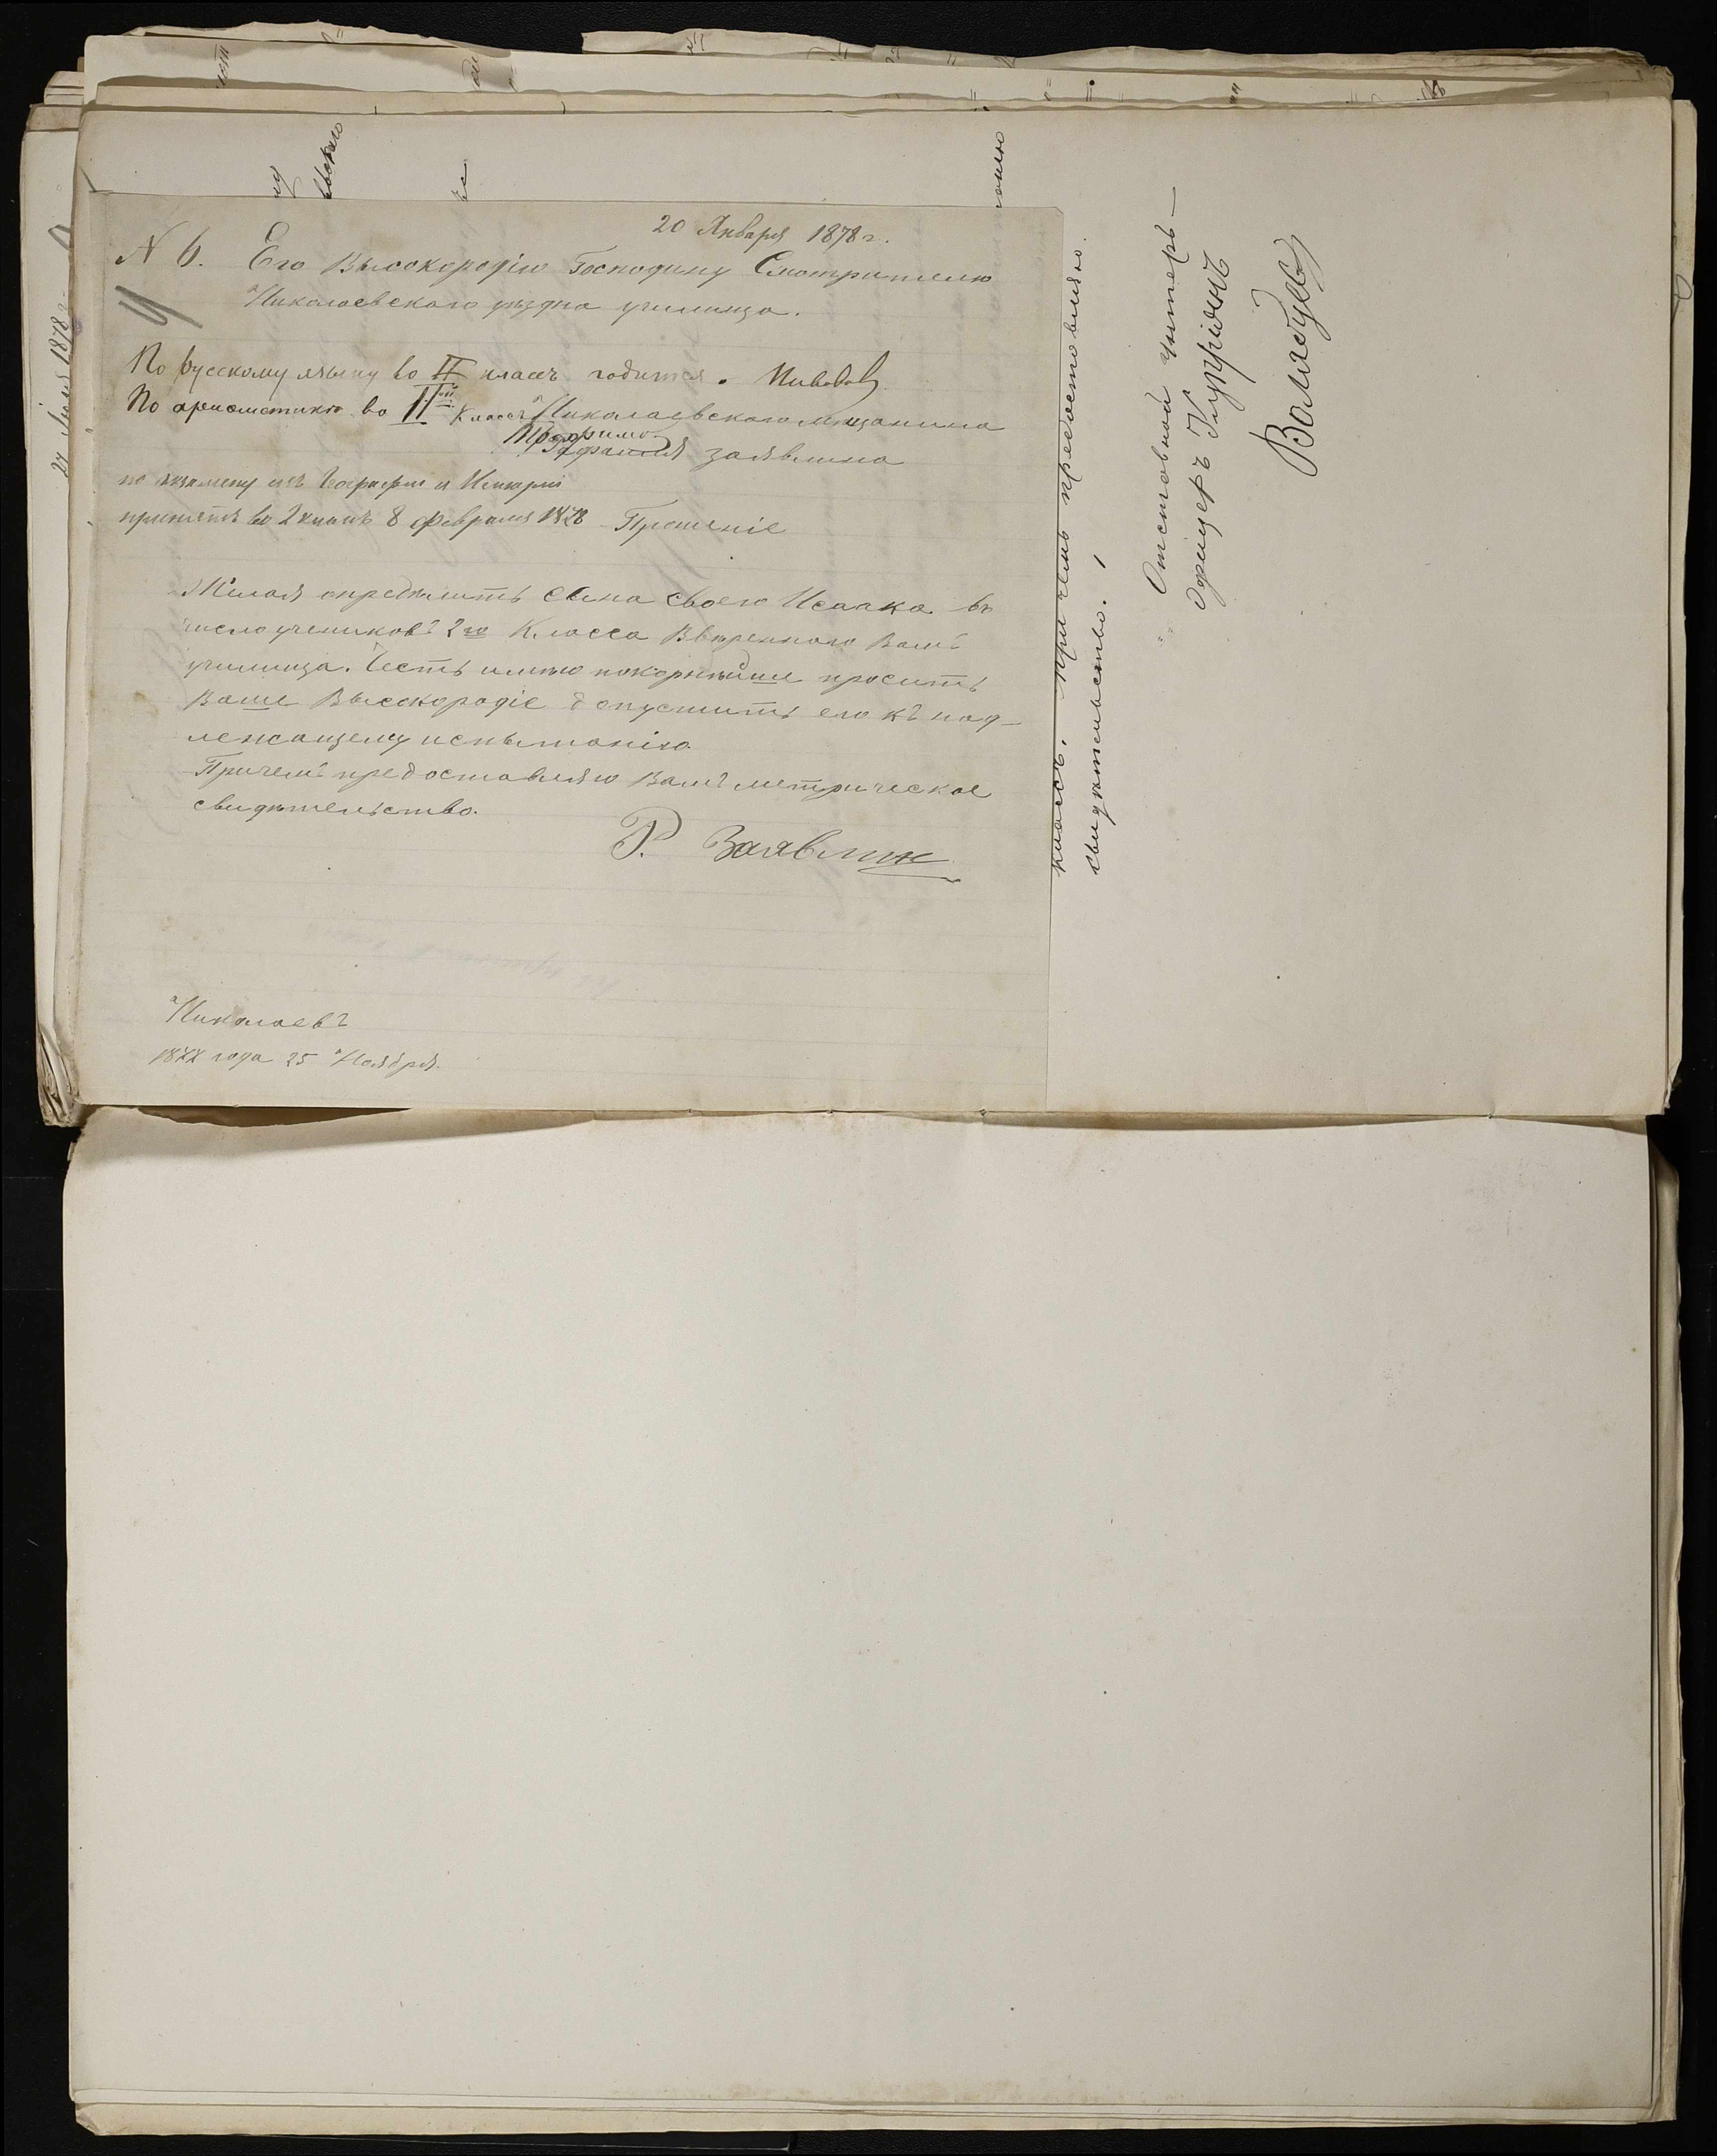 20 Января 1878 г.
N 6. Его Высокородію Господину Смотрителю
Николаевскаго уѣздна училища.
По русскому языку во II классъ годится.
По ариөметикѣ во II классъ
Николаевскаго мѣщанина
Заявлина
по экзамену изъ Географіи и Исторіи
принятъ во 2 классъ 8 февраля 1878
Прошеніе
Желая опредѣлить сына своего Исаака въ
число учениковъ 2го Класса Ввѣреннаго Вамъ
училища. Честь имѣю покорнѣйше просить
Ваше Высокородіе допустить его къ над-
лежащему испытанію.
Причемъ предоставляю Вамъ метрическое
свидѣтельство.
Р. Заявлин
Николаевъ
1877 года 25 Ноября.
классъ. При чемъ предоставляю
свидѣтельство.
Отставной Унтеръ-
Офицеръ Купріянъ
27 1878 г.